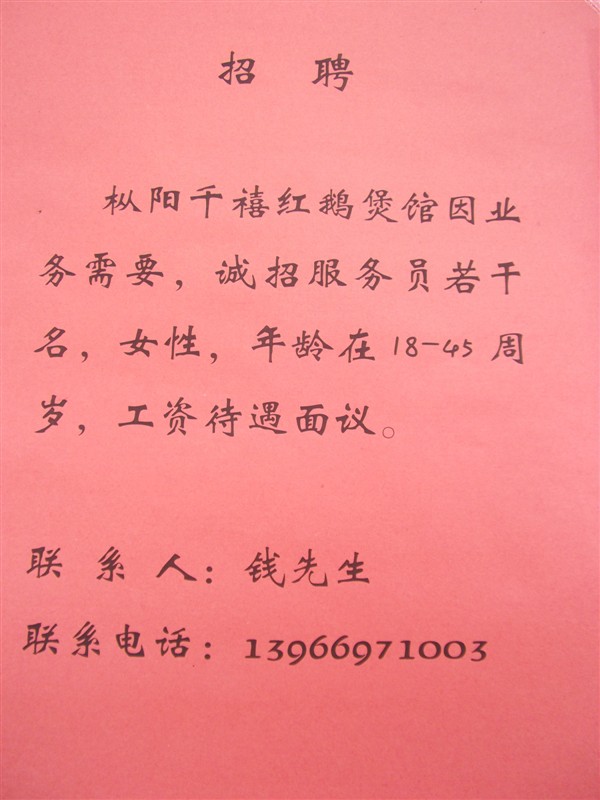 招 聘
枞阳千禧红鹅煲馆因业
务需要，诚招服务员若干
名，女性，年龄在18-45周
岁，工资待遇面议。
联 系 人：钱先生
联系电话：13966971003